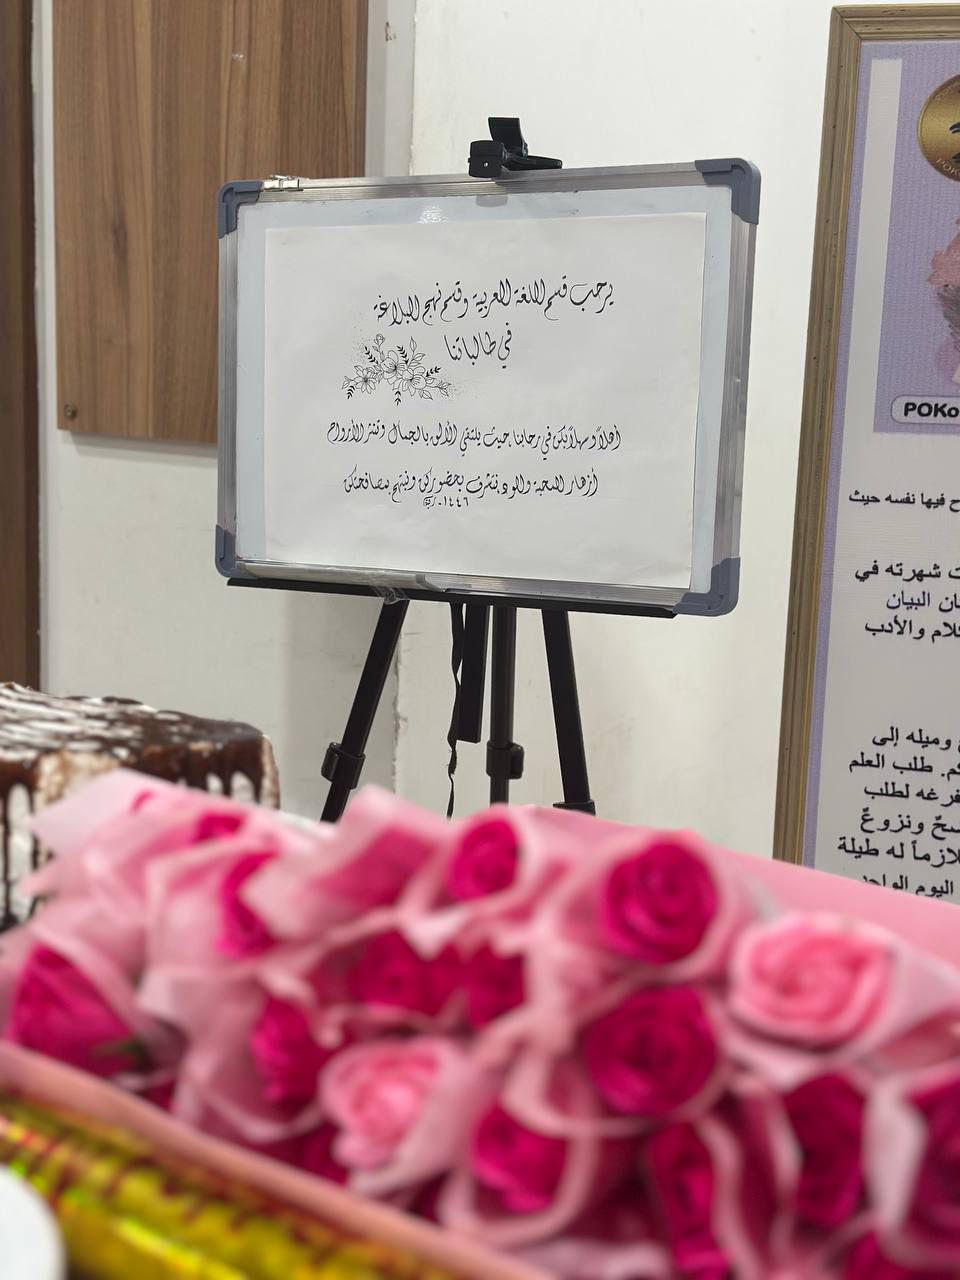 يرحب قسم اللغة العربية وقسم نهج البلاغة
في طالباتنا
أهلاً وسهلاً بكن في رحابنا .حيث يلتقي الألق بالجمال وتنثر الأرواح
أزهار المحبة والود نتشرف بحضوركن ونبتهج بمصافحتكن
١٤٤٦
POKo
ح فيها نفسه حيث
ت شهرته في
ان البيان
كلام والأدب
وميله إلى
كم. طلب العلم
فرغه لطلب
سحٌ ونزوعٌ
لازماً له طيلة
اليوم الواحد